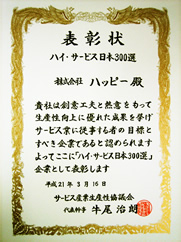 表彰状
ハイ・サービス日本300選
株式会社 ハッピー 殿
貴社は創意工夫と熱意をもって
生産性向上に優れた成果を挙げ
サービス業に従事する者の目標と
すべき企業であると認められます
よってここに「ハイ・サービス日本300選」
企業として表彰します
平成21年3月16日
サービス産業生産性協議会
代表幹事 牛尾 治朗